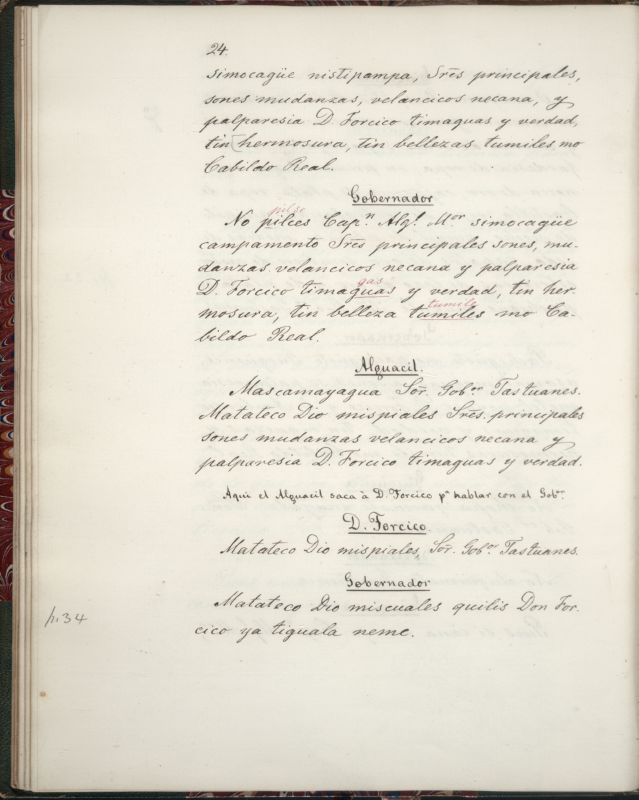 24.
simocagüe nistipampa, Sres principales,
sones mudanzas, velancicos necana, y
palparesia D. Forcico timaguas y verdad,
tin hermosura, tin bellezas tumiles mo
Cabildo Real.
Gobernador
pilse
No pilces Cap.n Alg.l M.or simocagüe
campamento Sres principales sones, mu-
danzas velancicos necana y palparesia
gas
D. Forcico timaguas y verdad, tin her-
tumile
mosura, tin belleza tumiles mo Ca-
bildo Real.
Alguacil.
Mascamayagua Sor. Gob.or Tastuanes.
Matateco Dio mispiales Sres. principales
sones mudanzas velancicos necana y
palparesia D. Forcico timaguas y verdad.
Aqui el Alguacil saca à D. Forcico p.a hablar con el Gob.or
D. Forcico.
Matateco Dio mispiales, Sor. Gob.or Tastuanes.
Gobernador
Matateco Dio miscuales quilis Don For-
cico ya tiguala neme.
p. 34